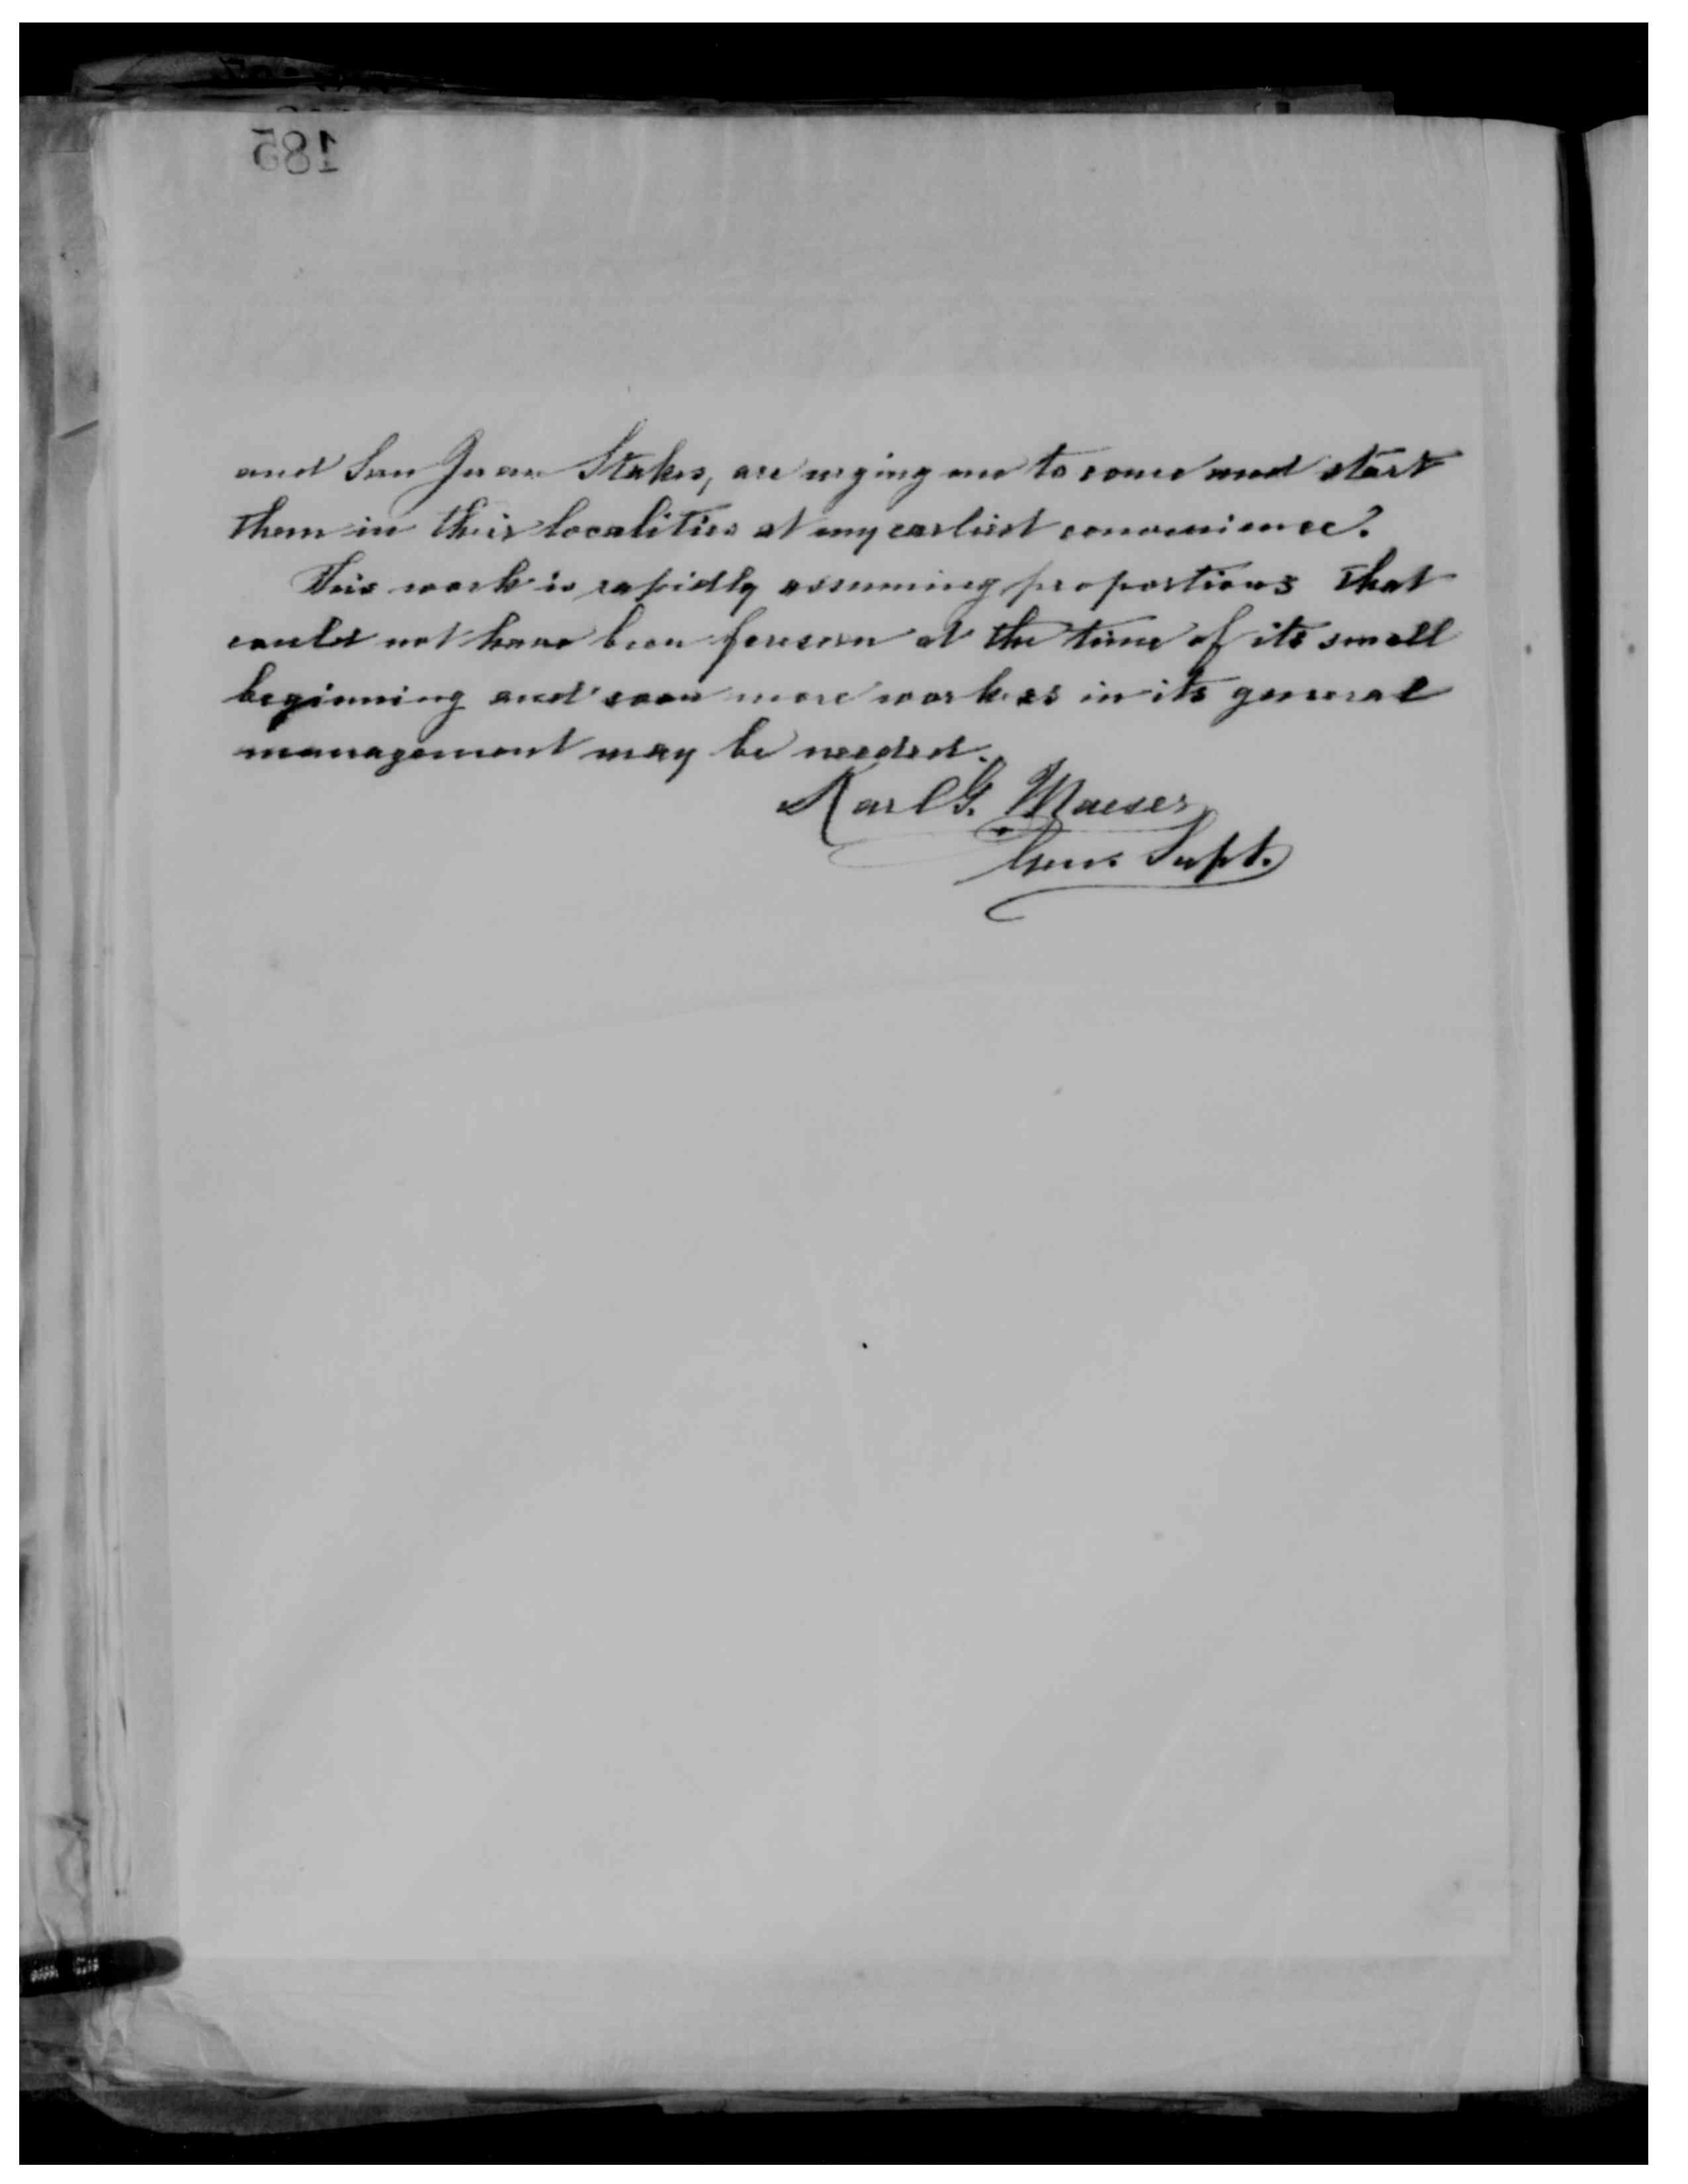 185
and San Juan Stakes, are urging me to come and start
them in their localities at my earliest convenience.
This work is rapidly assuming proportions that
could not have been foreseen at the time of its small
beginning and soon more workers in its general
management may be needed.
Karl G. Maeser
Gen. Supt.